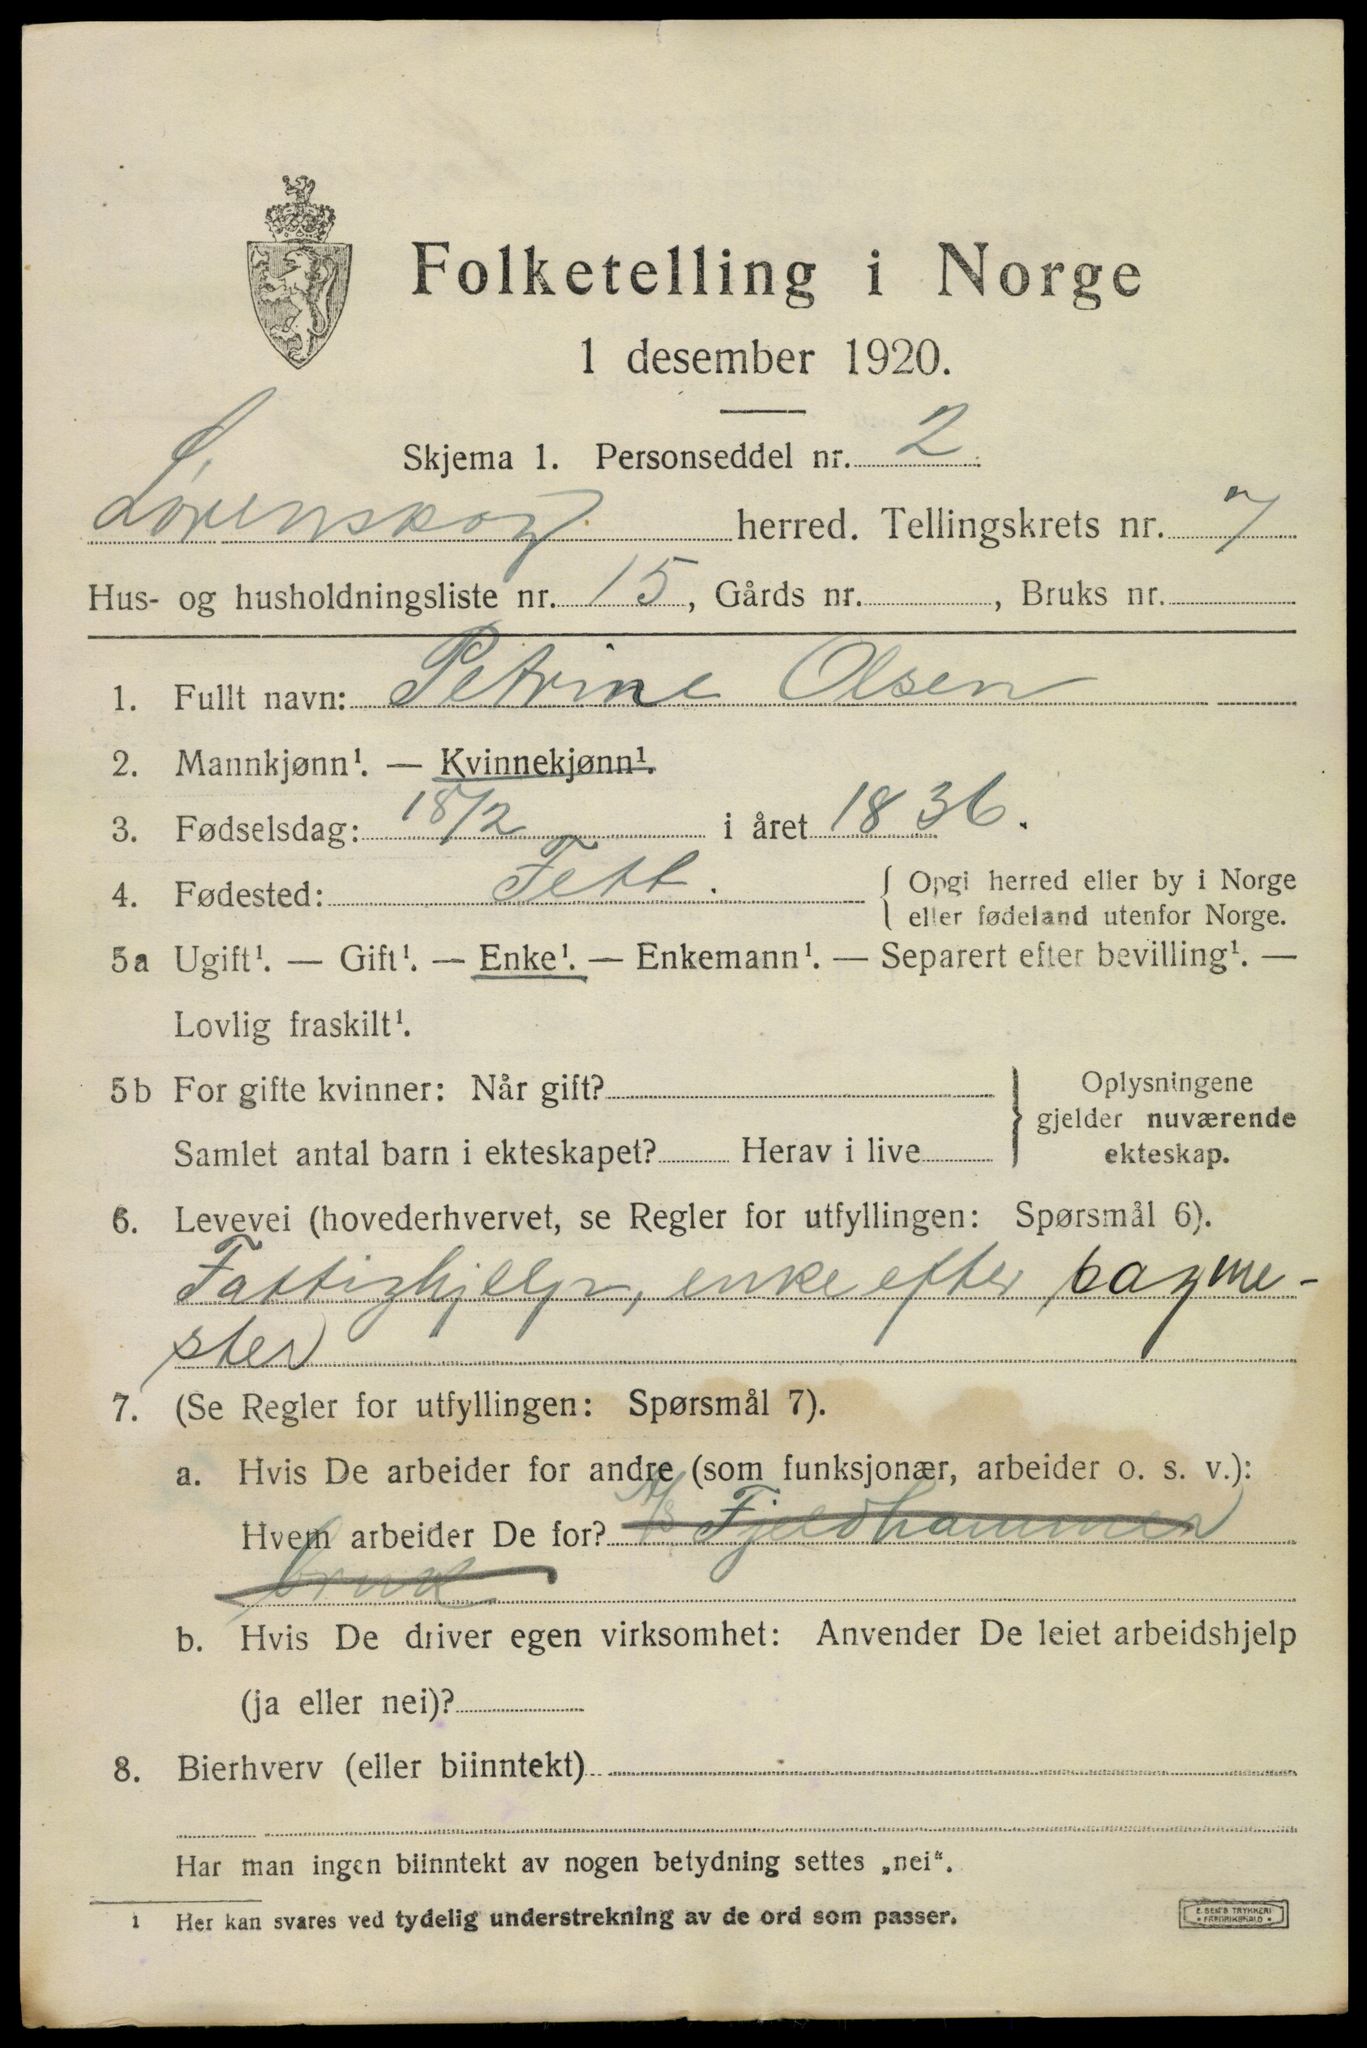 Folketelling i Norge
1 desember 1920.
Skjema 1. Personseddel nr. 2
Lørenskog herred. Tellingskrets nr. 7
Hus- og husholdningsliste nr. 15, Gårds nr. , Bruks nr.
1. Fullt navn: Petrine Olsen
2. Mannkjønn¹. — Kvinnekjønn¹.
3. Fødselsdag: 18/2 i året 1836.
4. Fødested: Fett. { Opgi herred eller by i Norge
eller fødeland utenfor Norge.
5a Ugift¹. — Gift¹. — Enke¹. — Enkemann¹. — Separert efter bevilling¹. —
Lovlig fraskilt¹.
5b For gifte kvinner: Når gift? } Oplysningene
gjelder nuværende
Samlet antal barn i ekteskapet? Herav i live ekteskap.
6. Levevei (hovederhvervet, se Regler for utfyllingen: Spørsmål 6).
Fattighjelp, enke efter sagme-
ster
7. (Se Regler for utfyllingen: Spørsmål 7).
a. Hvis De arbeider for andre (som funksjonær, arbeider o. s. v.):
Hvem arbeider De for? A/S Fjeldhammer
bruk
b. Hvis De driver egen virksomhet: Anvender De leiet arbeidshjelp
(ja eller nei)?
8. Bierhverv (eller biinntekt)
Har man ingen biinntekt av nogen betydning settes „nei“.
1 Her kan svares ved tydelig understrekning av de ord som passer.
E. SEM'S TRYKKERI
• FREDRIKSHALD •